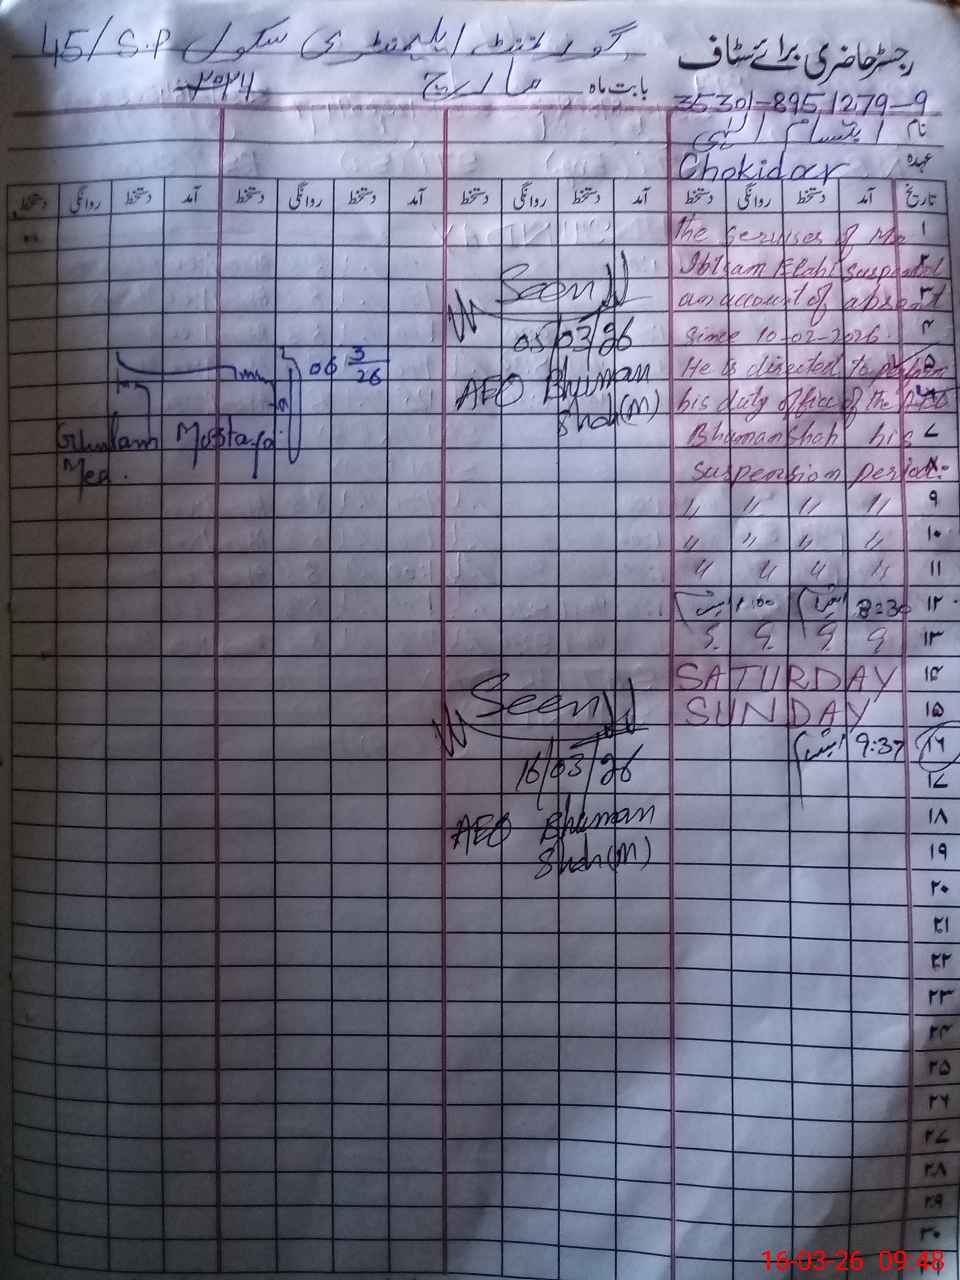 رجسٹر حاضری برائے سٹاف
گورنمنٹ ایلیمنٹری سکول 45/S.P
بابت ماہ مارچ ۲۰۲۶
35301-8951279-9
نام ابتسام الہی
عہدہ Chokidar
تاریخ آمد دستخط روانگی دستخط آمد دستخط روانگی دستخط آمد دستخط روانگی دستخط آمد دستخط روانگی دستخط
۱ the servises of Mr.
۲ Ibtsam Elahi suspended
۳ an account of absent
۴ since 10-02-2026.
۵ He is directed to perform
۶ his duty office of the AEO
۷ Bhuman Shah his
۸ suspension period.
۹ " " " "
۱۰ " " " "
۱۱ " " " "
۱۲ 8:30 1:00
۱۳
۱۴ SATURDAY
۱۵ SUNDAY
۱۶ 9:37
۱۷
۱۸
۱۹
۲۰
۲۱
۲۲
۲۳
۲۴
۲۵
۲۶
۲۷
۲۸
۲۹
۳۰
Seen
05/03/26
AEO Bhuman
Shah(M)
06 3/26
Ghulam Mustafa
Mea.
Seen
16/03/26
AEO Bhuman
Shah(M)
16-03-26 09:48